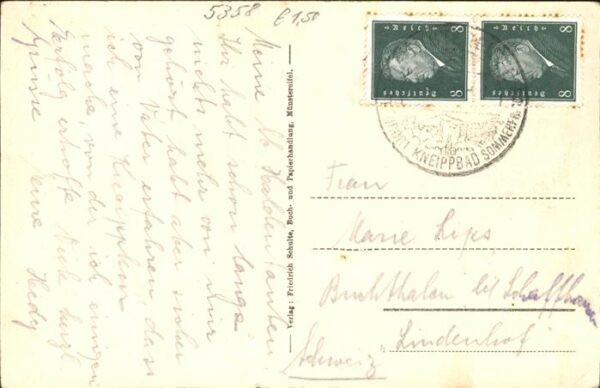 5358 € 1,50
Meine lb Haldentanten
Ihr habt schon lange
nichts mehr von mir
gehört habt aber sicher
von Vater erfahren, dass
ich eine Kneippkur
mache, von der ich einigen
Erfolg erhoffe. Euch herzl.
Grüsse Eure Hedy
Verlag: Friedrich Schulte, Buch- und Papierhandlung, Münstereifel.
8 Deutsches Reich 8
8 Deutsches Reich 8
KNEIPPBAD SOMMERFR
Frau
Marie Lips
Buchthalen bei Schaffhausen
Lindenhof
Schweiz